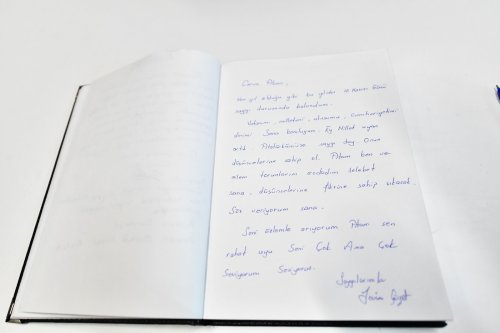 Canım Atam,
Her yıl olduğu gibi bu yılda 10 Kasım Günü
saygı duruşunda bulundum.
Vatanını, milletini, ulusunu, Cumhuriyetini
Sana borçluyum. Ey Millet uyan
artık. Atatürkümüze saygı duy. Onun
düşüncelerine sahip ol. Atam ben ve
ailem torunlarım ecdadım
sana, düşüncelerine fikrine sahip çıkacak.
Söz veriyorum sana.
Seni özlemle arıyorum Atam sen
rahat uyu Seni Çok Ama Çok
Seviyorum Seviyoruz.
Saygılarımla